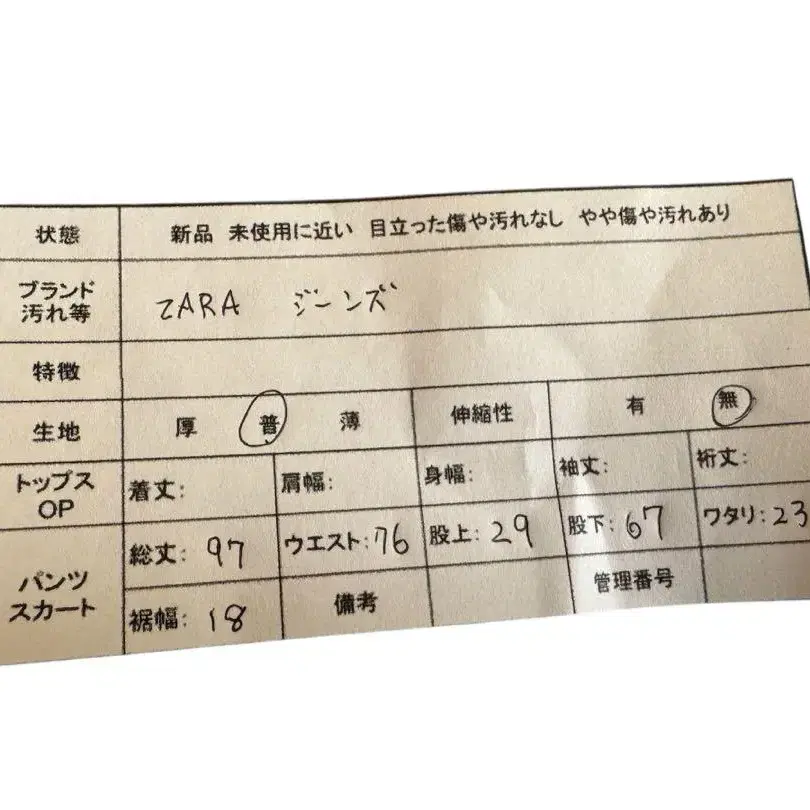 状態 新品 未使用に近い 目立った傷や汚れなし やや傷や汚れあり
ブランド
汚れ等 ZARA ジーンズ
特徴
生地 厚 普 薄 伸縮性 有 無
トップス
OP 着丈: 肩幅: 身幅: 袖丈: 裄丈:
パンツ
スカート
総丈: 97 ウエスト: 76 股上: 29 股下: 67 ワタリ: 23
裾幅: 18 備考 管理番号